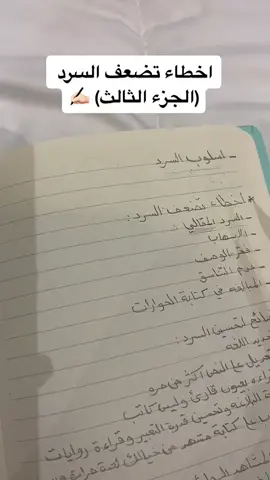 اخطاء تضعف السرد
(الجزء الثالث) ✍🏻
- اسلوب السرد
* أخطاء تضعف السرد:
- السرد المقالي:
- الإسهاب
- فقر الوصف
- عدم التناسق
- المبالغة في كتابة الحوارات
لتحسين السرد:
اللغة
على النص أكثر من مرة
بعيون قارئ وليس كاتب
وتحسين قدرة التعبير وقراءة روايات
كتابة مشهد من خيالك